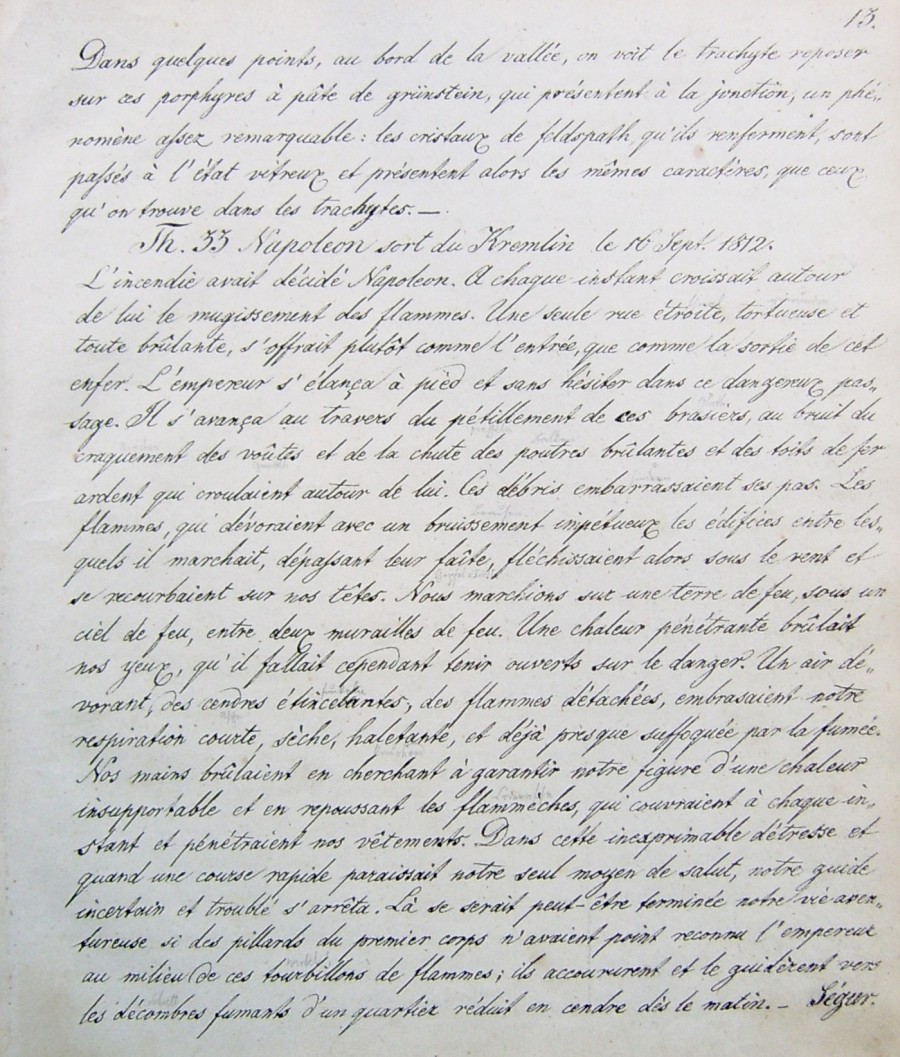 13.
Dans quelques points, au bord de la vallée, on voit le trachyte reposer
sur ces porphyres à pâte de grünstein, qui présentent à la jonction, un phé„
nomène aſsez remarquable : les cristaux de feldspath, qu'ils renferment, sont
paſsés à l'état vitreux et présentent alors les mêmes caractères, que ceux
qu'on trouve dans les trachytes. —
Th. 33 Napoleon sort du Kremlin le 16 Sept. 1812.
L'incendie avait décidé Napoleon. A chaque instant croissait autour
de lui le mugissement des flammes. Une seule rue étroite, tortueuse et
toute brûlante, s'offrait plutôt comme l'entrée, que comme la sortie de cet
enfer. L'empereur s'élança à pied et sans hésiter dans ce dangereux pas„
sage. Il s'avança au travers du pétillement de ces brasiers, au bruit du
craquement des voûtes et de la chute des poutres brûlantes et des toits de fer
ardent qui croulaient autour de lui. Ces débris embarrassaient ses pas. Les
flammes, qui dévoraient avec un bruissement impétueux les édifices entre les„
quels il marchait, dépaſsant leur faîte, fléchissaient alors sous le vent et
se recourbaient sur nos têtes. Nous marchions sur une terre de feu, sous un
ciel de feu, entre deux murailles de feu. Une chaleur pénétrante brûlait
nos yeux, qu'il fallait cependant tenir ouverts sur le danger. Un air dé„
vorant, des cendres étincelantes, des flammes détachées, embrasaient notre
respiration courte, sèche, haletante, et déjà presque suffoquée par la fumée.
Nos mains brûlaient en cherchant à garantir notre figure d'une chaleur
insupportable et en repoussant les flammèches, qui couvraient à chaque in„
stant et pénétraient nos vêtements. Dans cette inexprimable détresse et
quand une course rapide paraissait notre seul moyen de salut, notre guide
incertain et troublé s'arrêta. Là se serait peut-être terminée notre vie aven„
tureuse si des pillards du premier corps n'avaient point reconnu l'empereur
au milieu de ces tourbillons de flammes ; ils accoururent et le guidèrent vers
les décombres fumants d'un quartier réduit en cendre dès le matin. – Ségur.